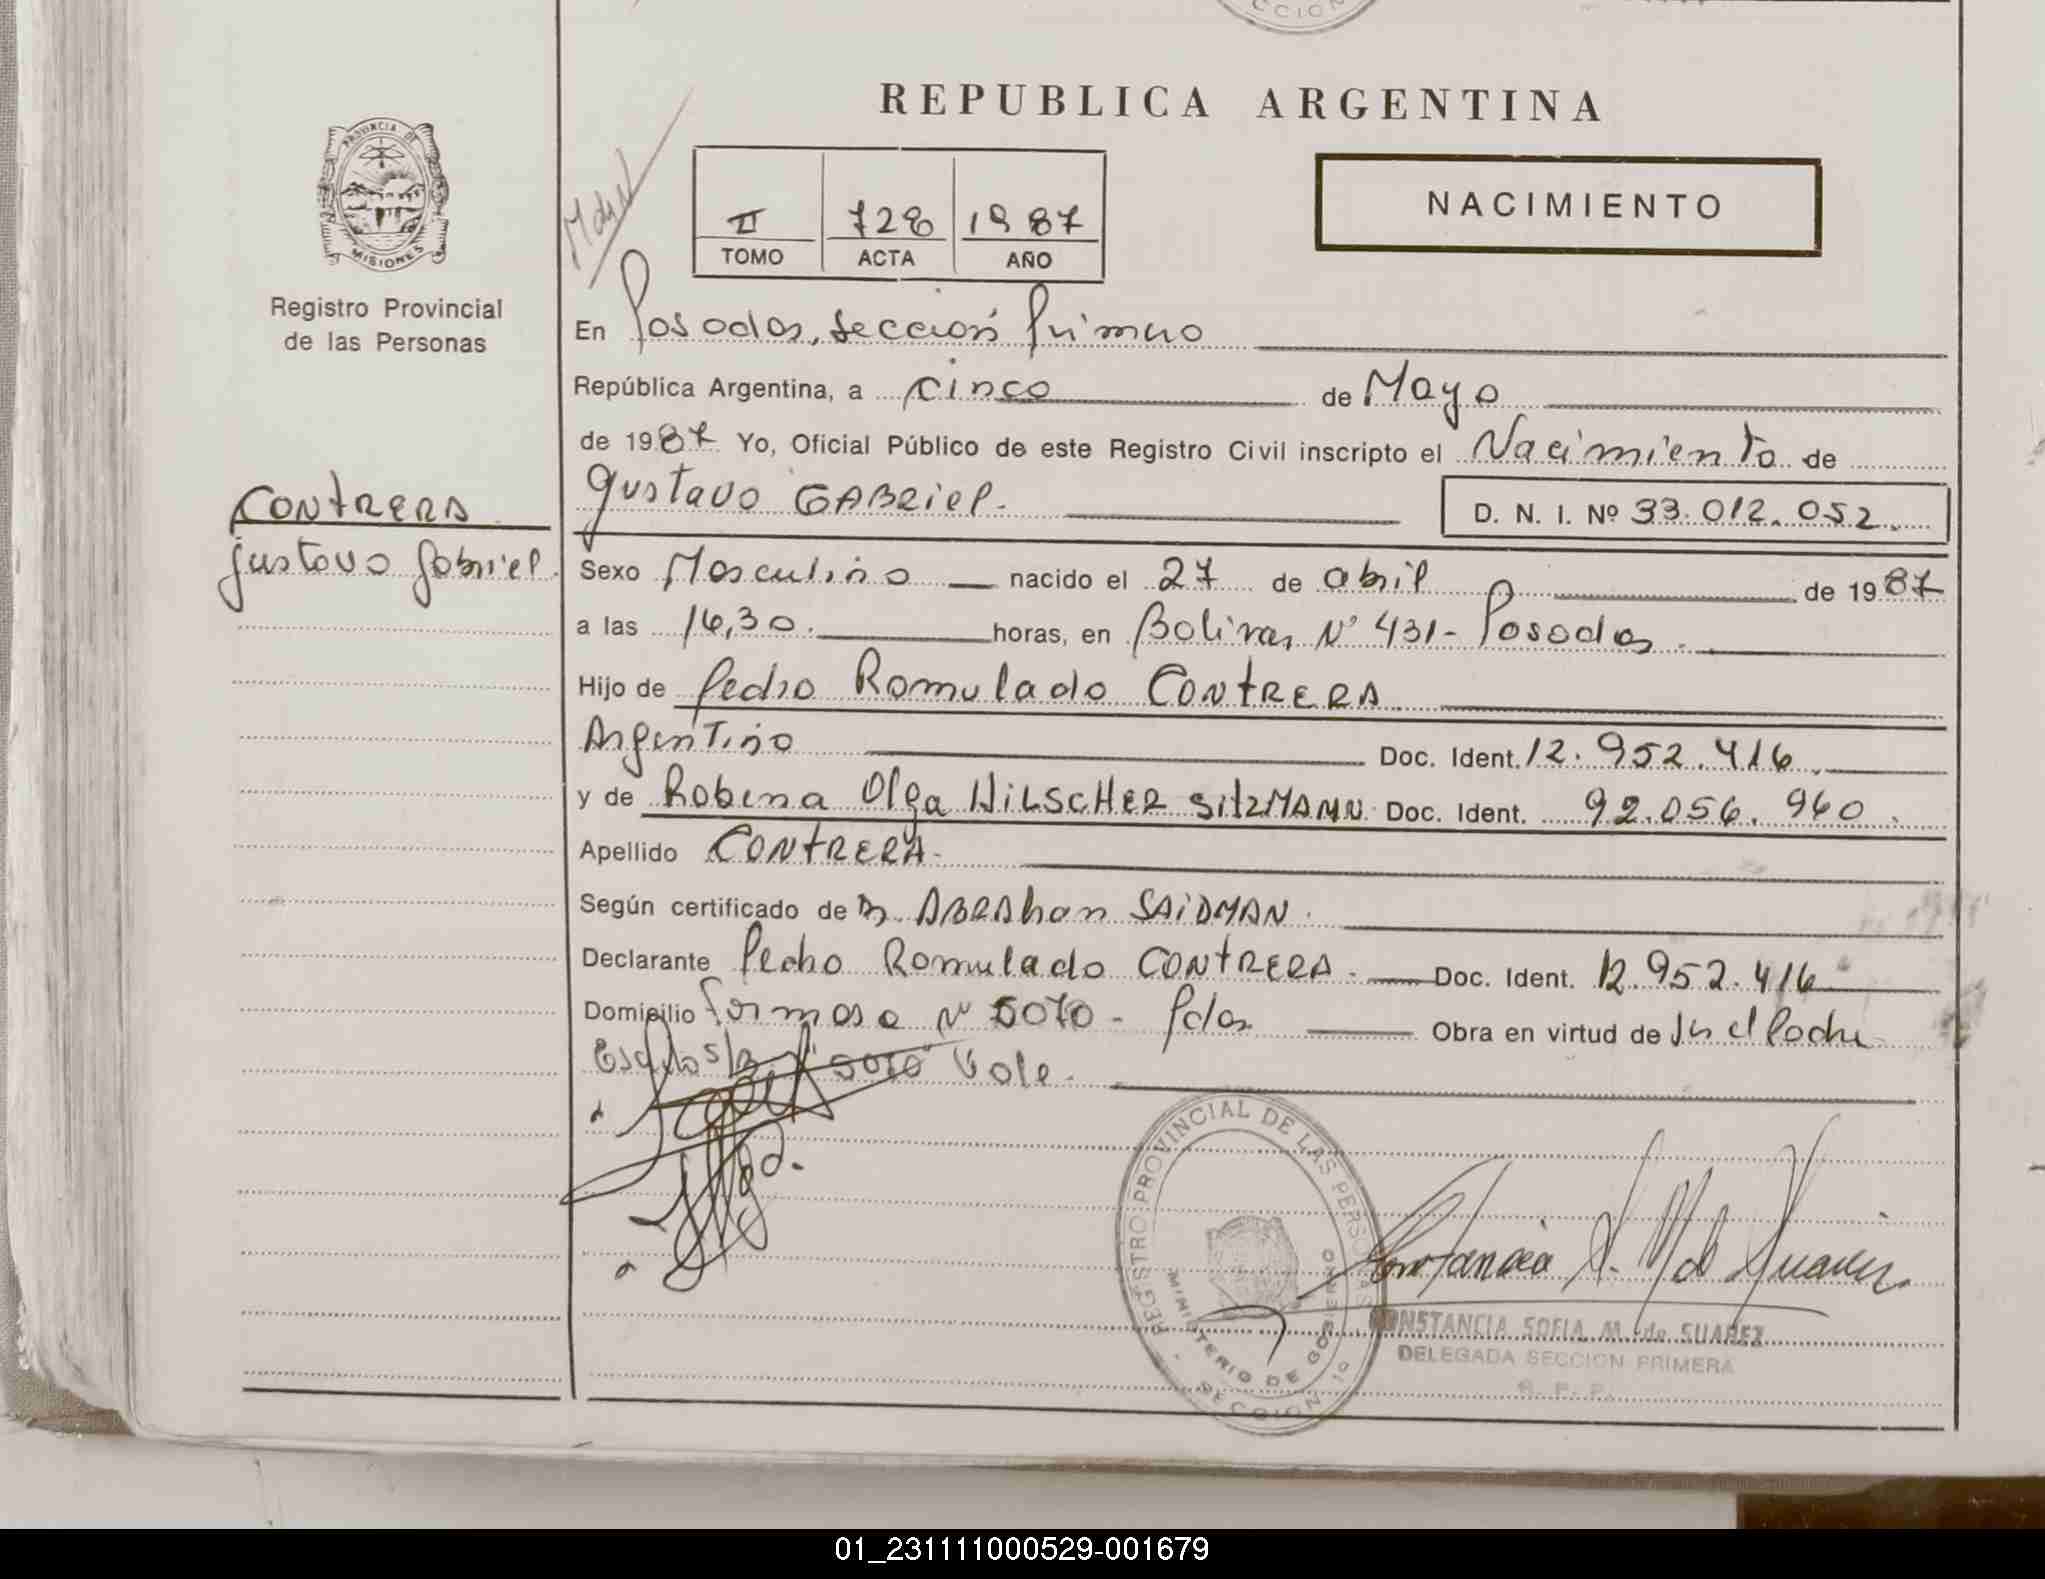 CCION
REPUBLICA ARGENTINA
PROVINCIA DE
MISIONES
Registro Provincial
de las Personas
II 728 1987
TOMO ACTA AÑO
NACIMIENTO
En Posadas, Sección Primera
República Argentina, a cinco de Mayo
de 1987 Yo, Oficial Público de este Registro Civil inscripto el Nacimiento de
Gustavo GABRiel.
D. N. I. Nº 33.012.052.
CONTRERA
Gustavo Gabriel.
Sexo Masculino nacido el 27 de abril de 1987
a las 16,30. horas, en Bolivar Nº 431- Posadas.
Hijo de Pedro Romulado CONTRERA
Argentino Doc. Ident. 12.952.416.
y de Robena Olga HILSCHER SITZMANN Doc. Ident. 92.056.960.
Apellido CONTRERA.
Según certificado de Dr. ABRAhan SAIDMAN.
Declarante Pedro Romulado CONTRERA. Doc. Ident. 12.952.416
Domicilio Formosa Nº 5070 - Pdas Obra en virtud de ser el Padre
"5070" Vale.
REGISTRO PROVINCIAL DE LAS PERSONAS
MINISTERIO DE GOBIERNO
SECCION 1º
Constancia S. M de Suarez
CONSTANCIA SOFIA M. de SUAREZ
DELEGADA SECCION PRIMERA
R. P. P.
01_231111000529-001679